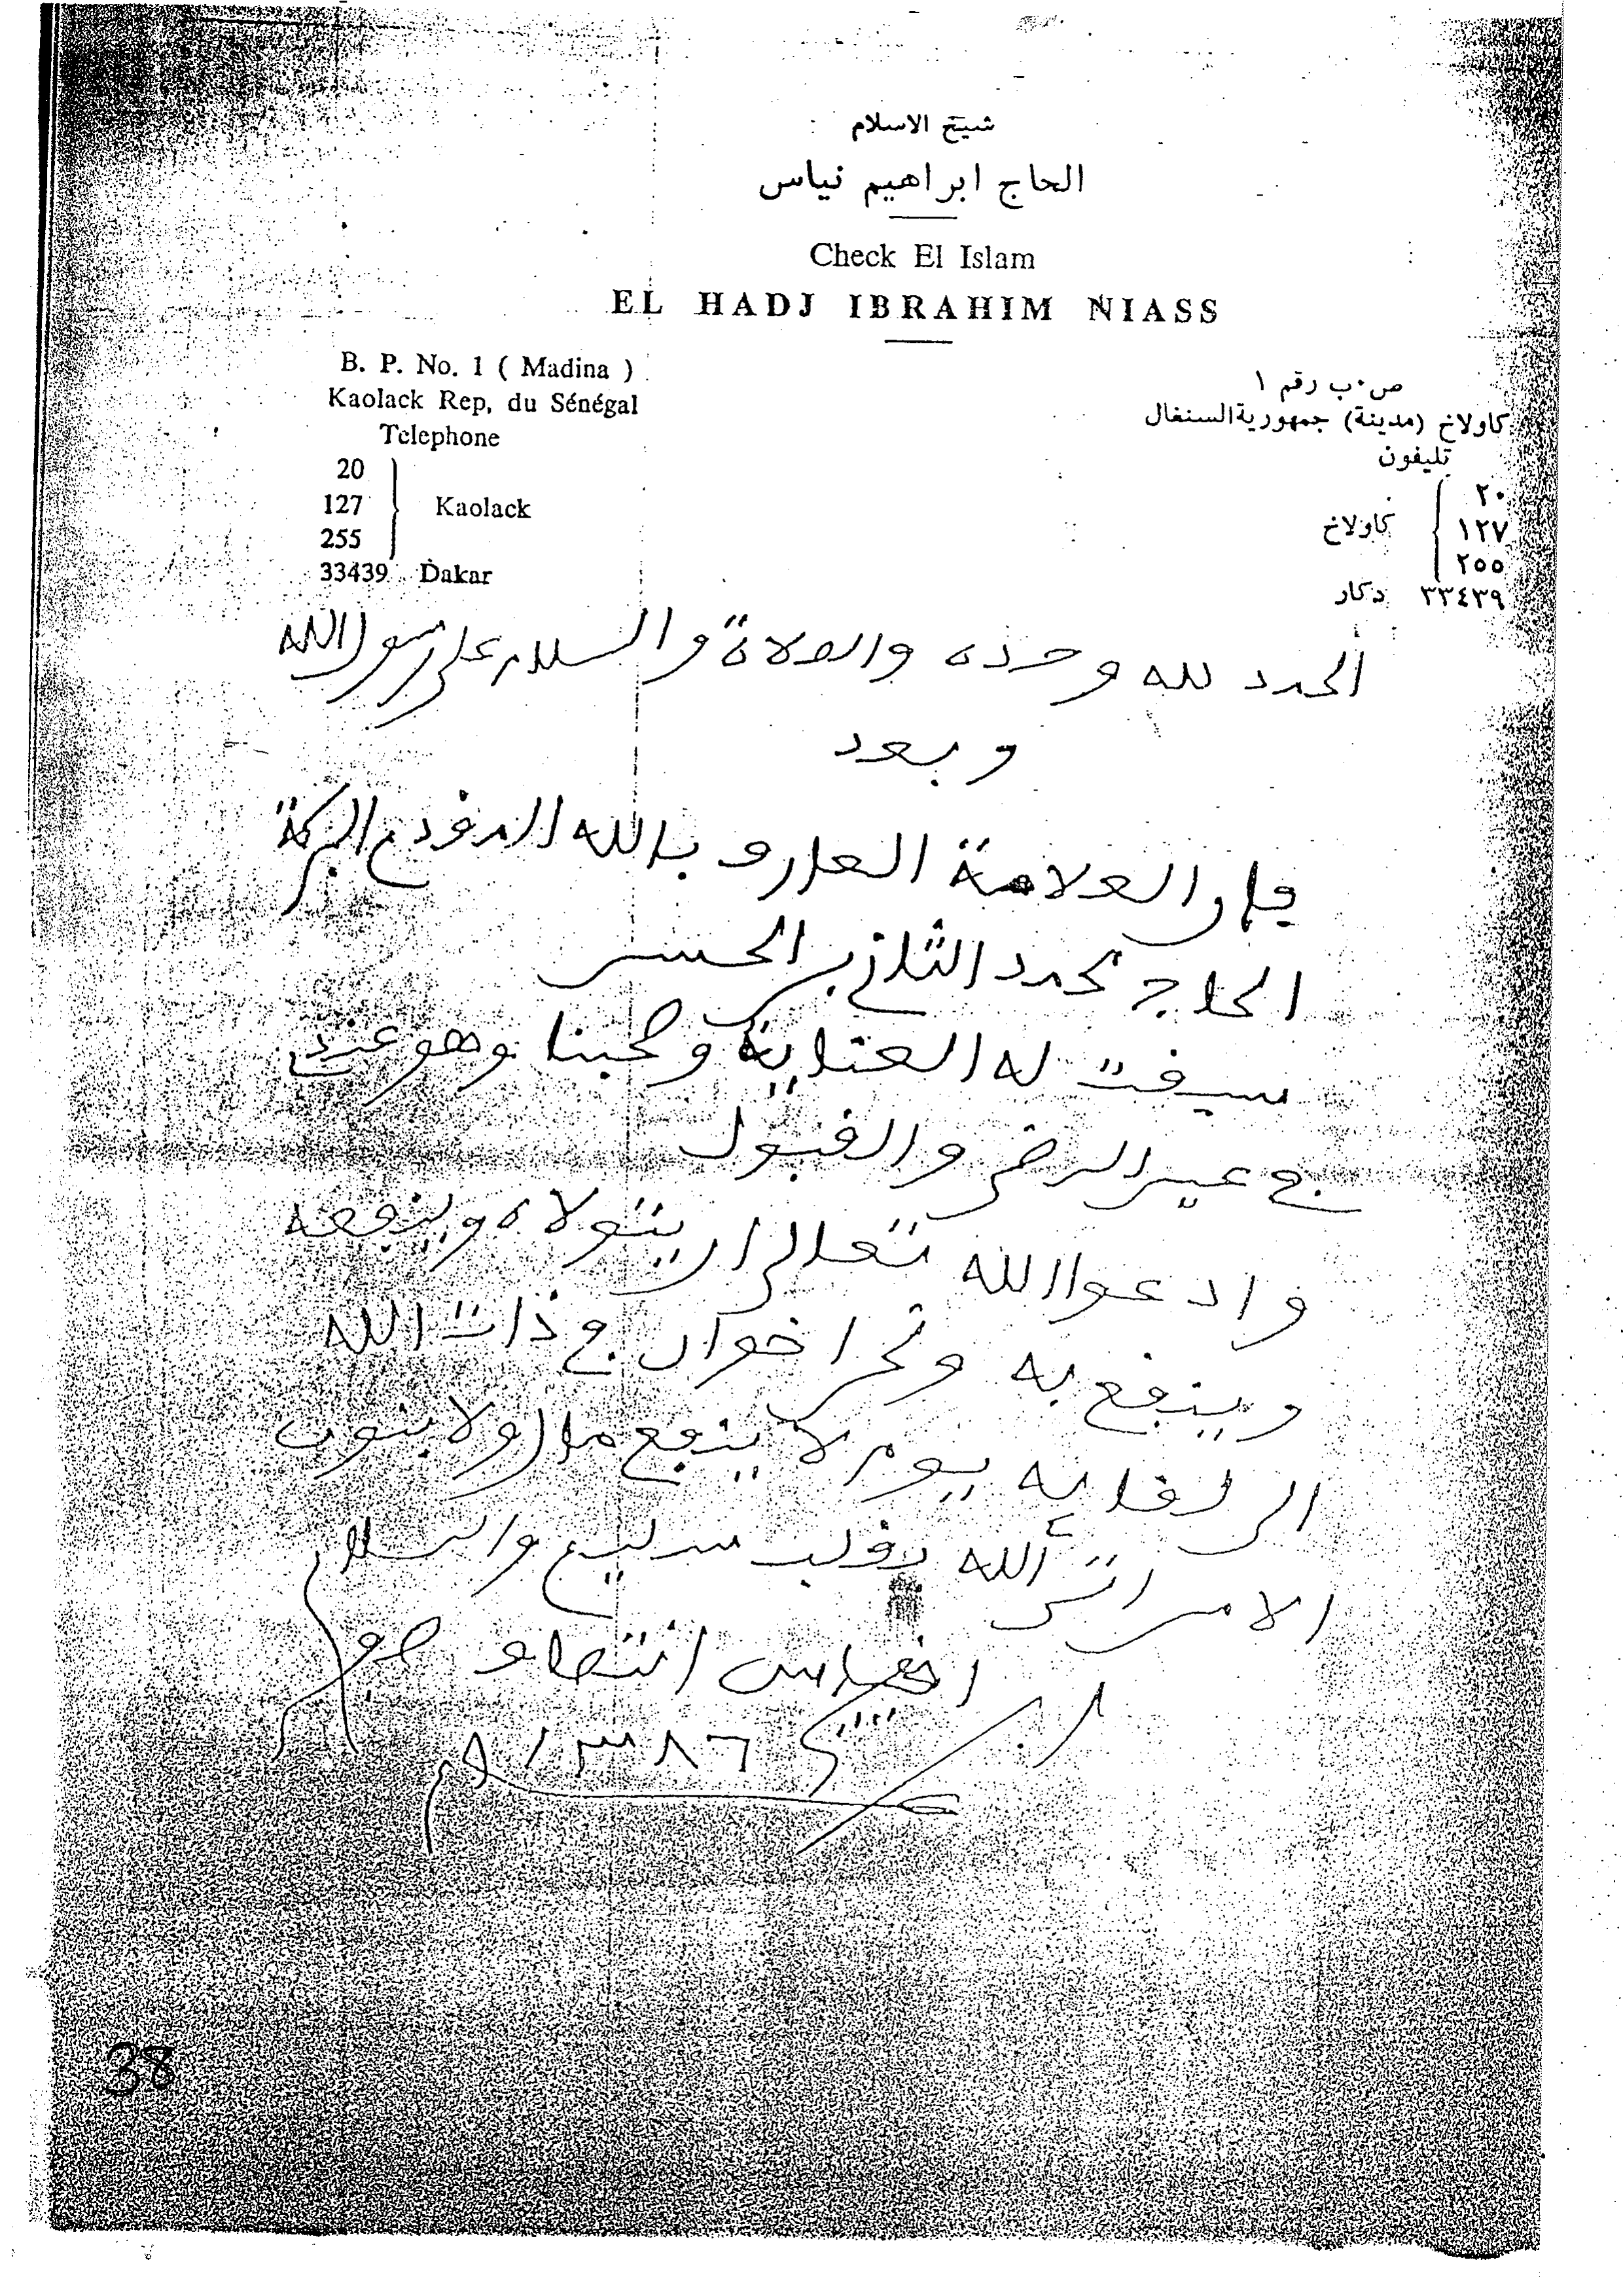 شيخ الاسلام
الحاج ابراهيم نياس
Check El Islam
EL HADJ IBRAHIM NIASS
B. P. No. 1 ( Madina )
Kaolack Rep, du Sénégal
Telephone
20
127 Kaolack
255
33439 Dakar
ص.ب رقم ١
كاولاخ (مدينة) جمهورية السنغال
تليفون
٢٠
١٢٧ كاولاخ
٢٥٥
٣٣٤٣٩ دكار
الحمد لله وحده والصلاة والسلام على رسول الله
وبعد
فإن العلامة العارف بالله المقدم البركة
الحاج محمد الثاني بن الحسن
سبقت له العناية وصحبنا وهو عندي
في عين الرضى والقبول
وادعوا الله تعالى ان يتولاه وينفعه
وينفع به ونحن اخوان في ذات الله
الى لقايه يوم لا ينفع مال ولا بنون
الا من اتى الله بقلب سليم والسلام
ابراهيم
نياس انتصاف صفر
١٣٨٦
38